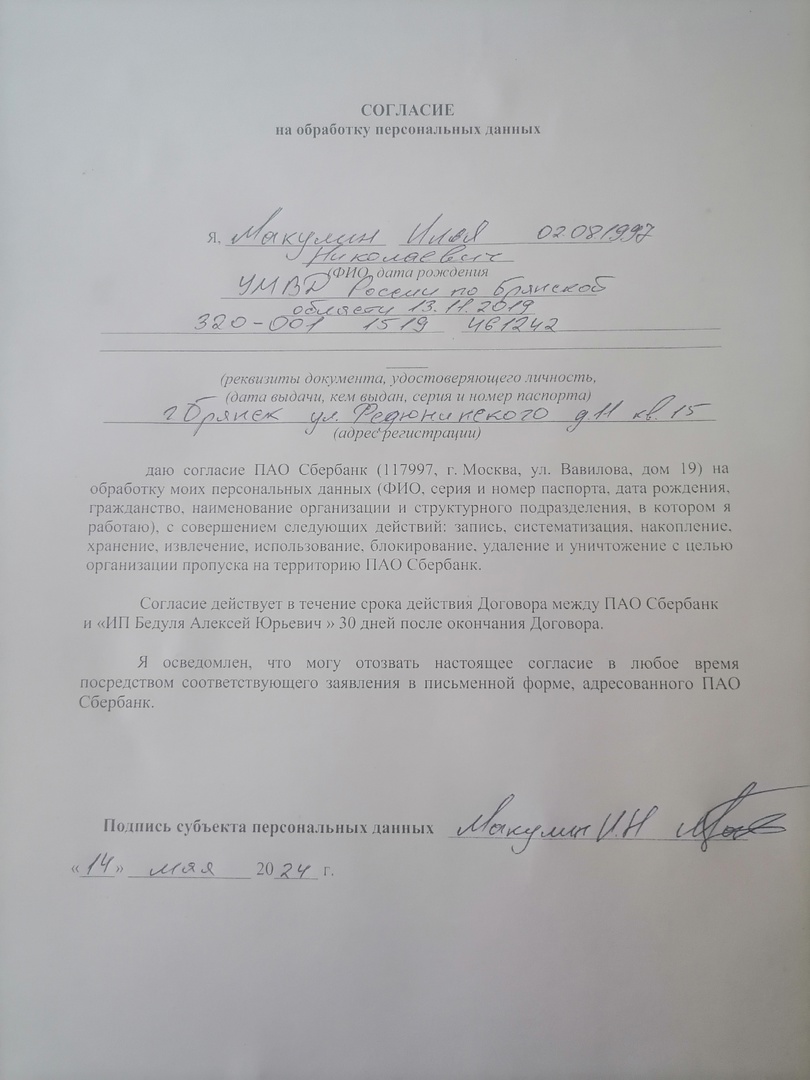 СОГЛАСИЕ
на обработку персональных данных
Я, Макулин Илья 02.08.1997
Николаевич
(ФИО, дата рождения
УМВД России по Брянской
области 13.11.2019
320-001 1519 461242
(реквизиты документа, удостоверяющего личность,
(дата выдачи, кем выдан, серия и номер паспорта)
г. Брянск ул. Федюнинского д.11 кв. 15
(адрес регистрации)
даю согласие ПАО Сбербанк (117997, г. Москва, ул. Вавилова, дом 19) на
обработку моих персональных данных (ФИО, серия и номер паспорта, дата рождения,
гражданство, наименование организации и структурного подразделения, в котором я
работаю), с совершением следующих действий: запись, систематизация, накопление,
хранение, извлечение, использование, блокирование, удаление и уничтожение с целью
организации пропуска на территорию ПАО Сбербанк.
Согласие действует в течение срока действия Договора между ПАО Сбербанк
и «ИП Бедуля Алексей Юрьевич » 30 дней после окончания Договора.
Я осведомлен, что могу отозвать настоящее согласие в любое время
посредством соответствующего заявления в письменной форме, адресованного ПАО
Сбербанк.
Подпись субъекта персональных данных Макулин И.Н
«14» мая 2024 г.